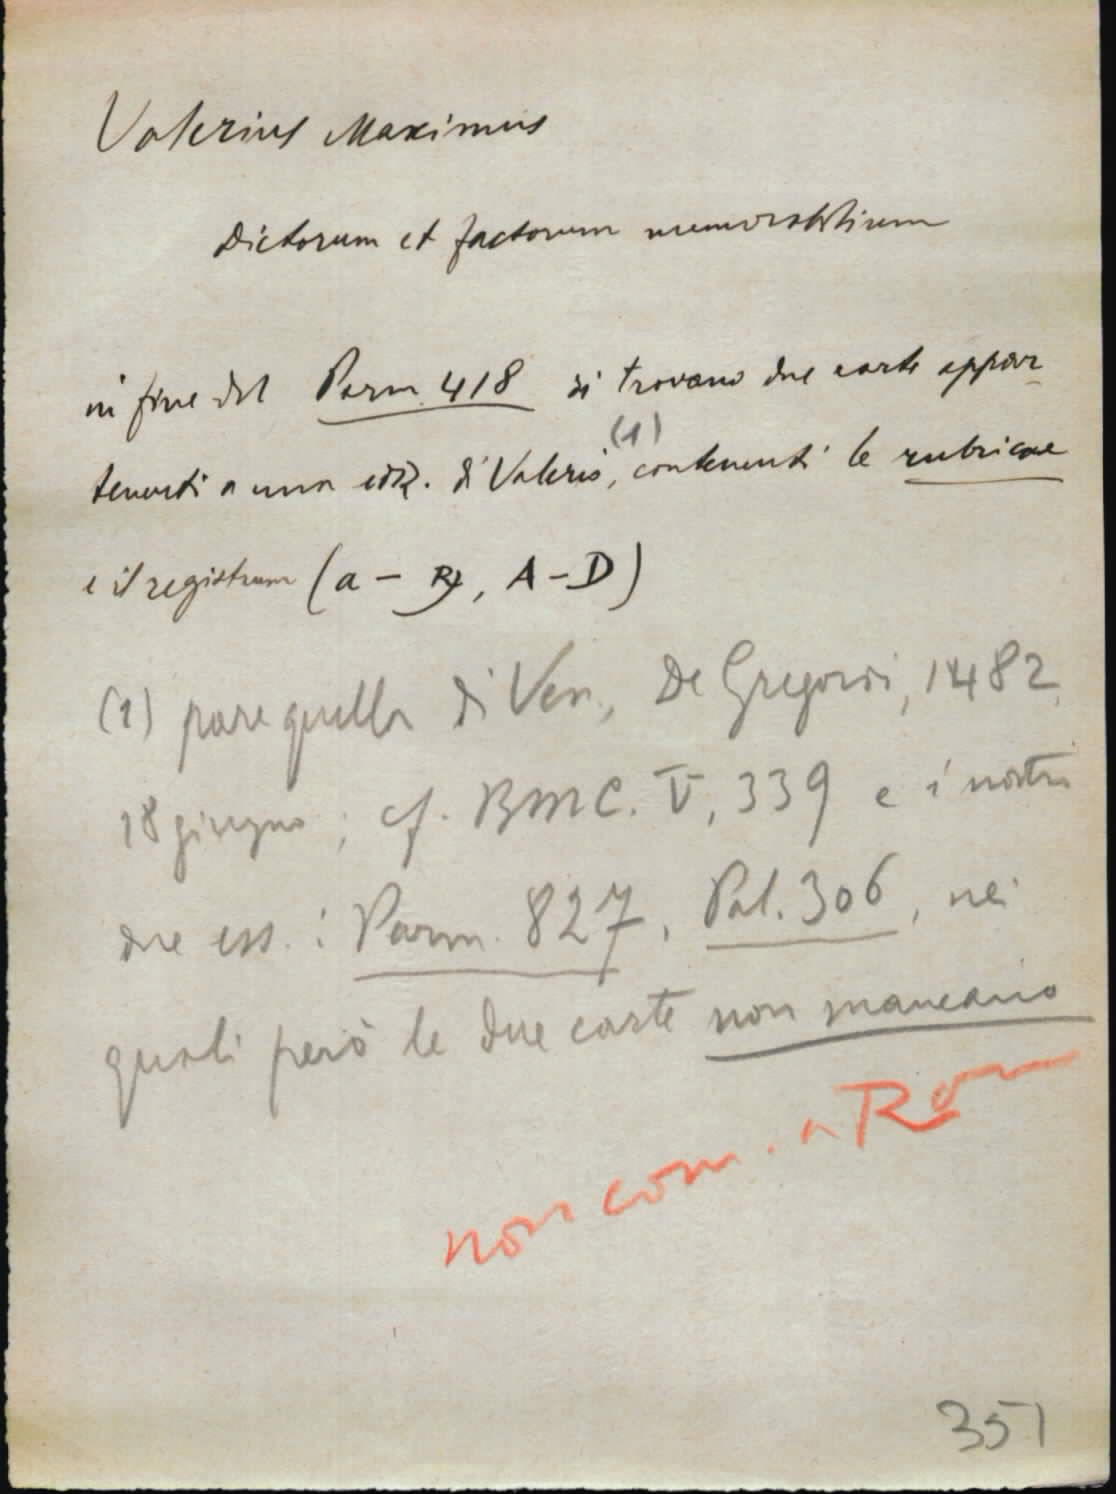 Valerius Maximus
Dictorum et factorum memorabilium
in fine del Parm. 418 si trovano due carte appar-
tenenti a una ediz. di Valerio, (1) contenenti le rubricae
e il registrum (a – ꝶ, A – D)
(1) pare quella di Ven., De Gregori, 1482,
18 giugno; cf. BMC. V, 339 e i nostri
due ess.: Parm. 827, Pal. 306, nei
quali però le due carte non mancano
non com. a Rom
351